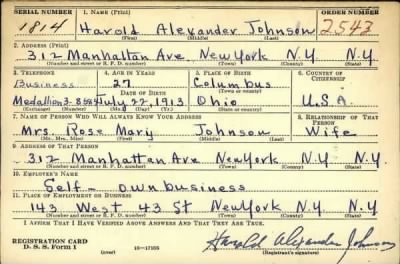 SERIAL NUMBER 1. NAME (Print) ORDER NUMBER
1814 Harold Alexander Johnson 2543
(First) (Middle) (Last)
2. ADDRESS (Print)
312 Manhattan Ave New York N.Y N.Y.
(Number and street or R. F. D. number) (Town) (County) (State)
3. TELEPHONE 4. AGE IN YEARS 5. PLACE OF BIRTH 6. COUNTRY OF CITIZENSHIP
Business 27 Columbus
DATE OF BIRTH (Town or county)
Medallion July 22, 1913 Ohio U.S.A
(Exchange) (No.) (Mo.) (Day) (Yr.) (State or country)
7. NAME OF PERSON WHO WILL ALWAYS KNOW YOUR ADDRESS 8. RELATIONSHIP OF THAT PERSON
Mrs. Rose Mary Johnson Wife
(Mr., Mrs., Miss) (First) (Middle) (Last)
9. ADDRESS OF THAT PERSON
312 Manhattan Ave New York N.Y N.Y
(Number and street or R. F. D. number) (Town) (County) (State)
10. EMPLOYER'S NAME
Self - own business
11. PLACE OF EMPLOYMENT OR BUSINESS
143 West 43 St New York N.Y. N.Y.
(Number and street or R. F. D. number) (Town) (County) (State)
I AFFIRM THAT I HAVE VERIFIED ABOVE ANSWERS AND THAT THEY ARE TRUE.
REGISTRATION CARD
D. S. S. Form 1 Harold Alexander Johnson
(Registrant's signature)